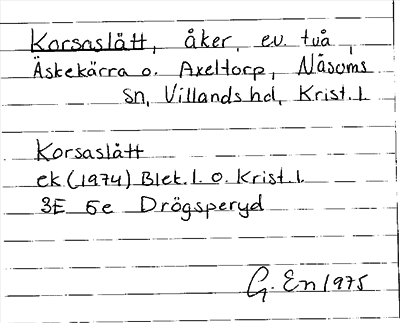 Korsaslått, åker, ev. två,
Äskekärra o. Axeltorp, Näsums
sn, Villands hd, Krist. l.
Korsaslått
ek (1974) Blek. l. o. Krist. l.
3E 6e Drögsperyd
G. En 1975